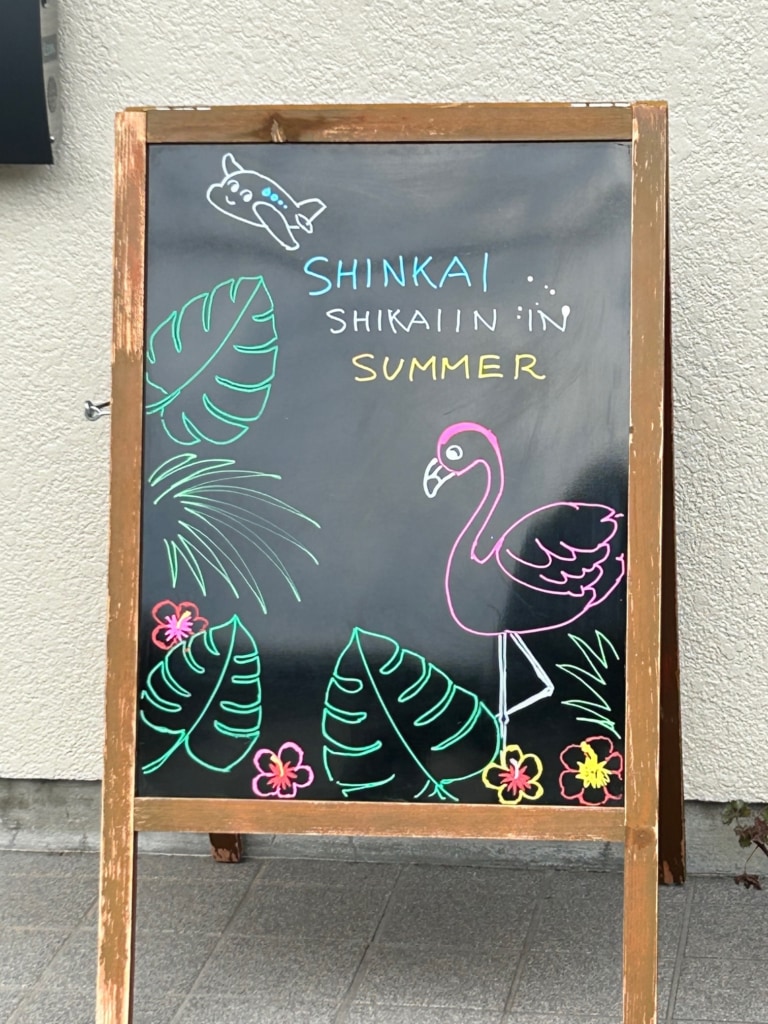 SHINKAI
SHIKAIIN IN
SUMMER